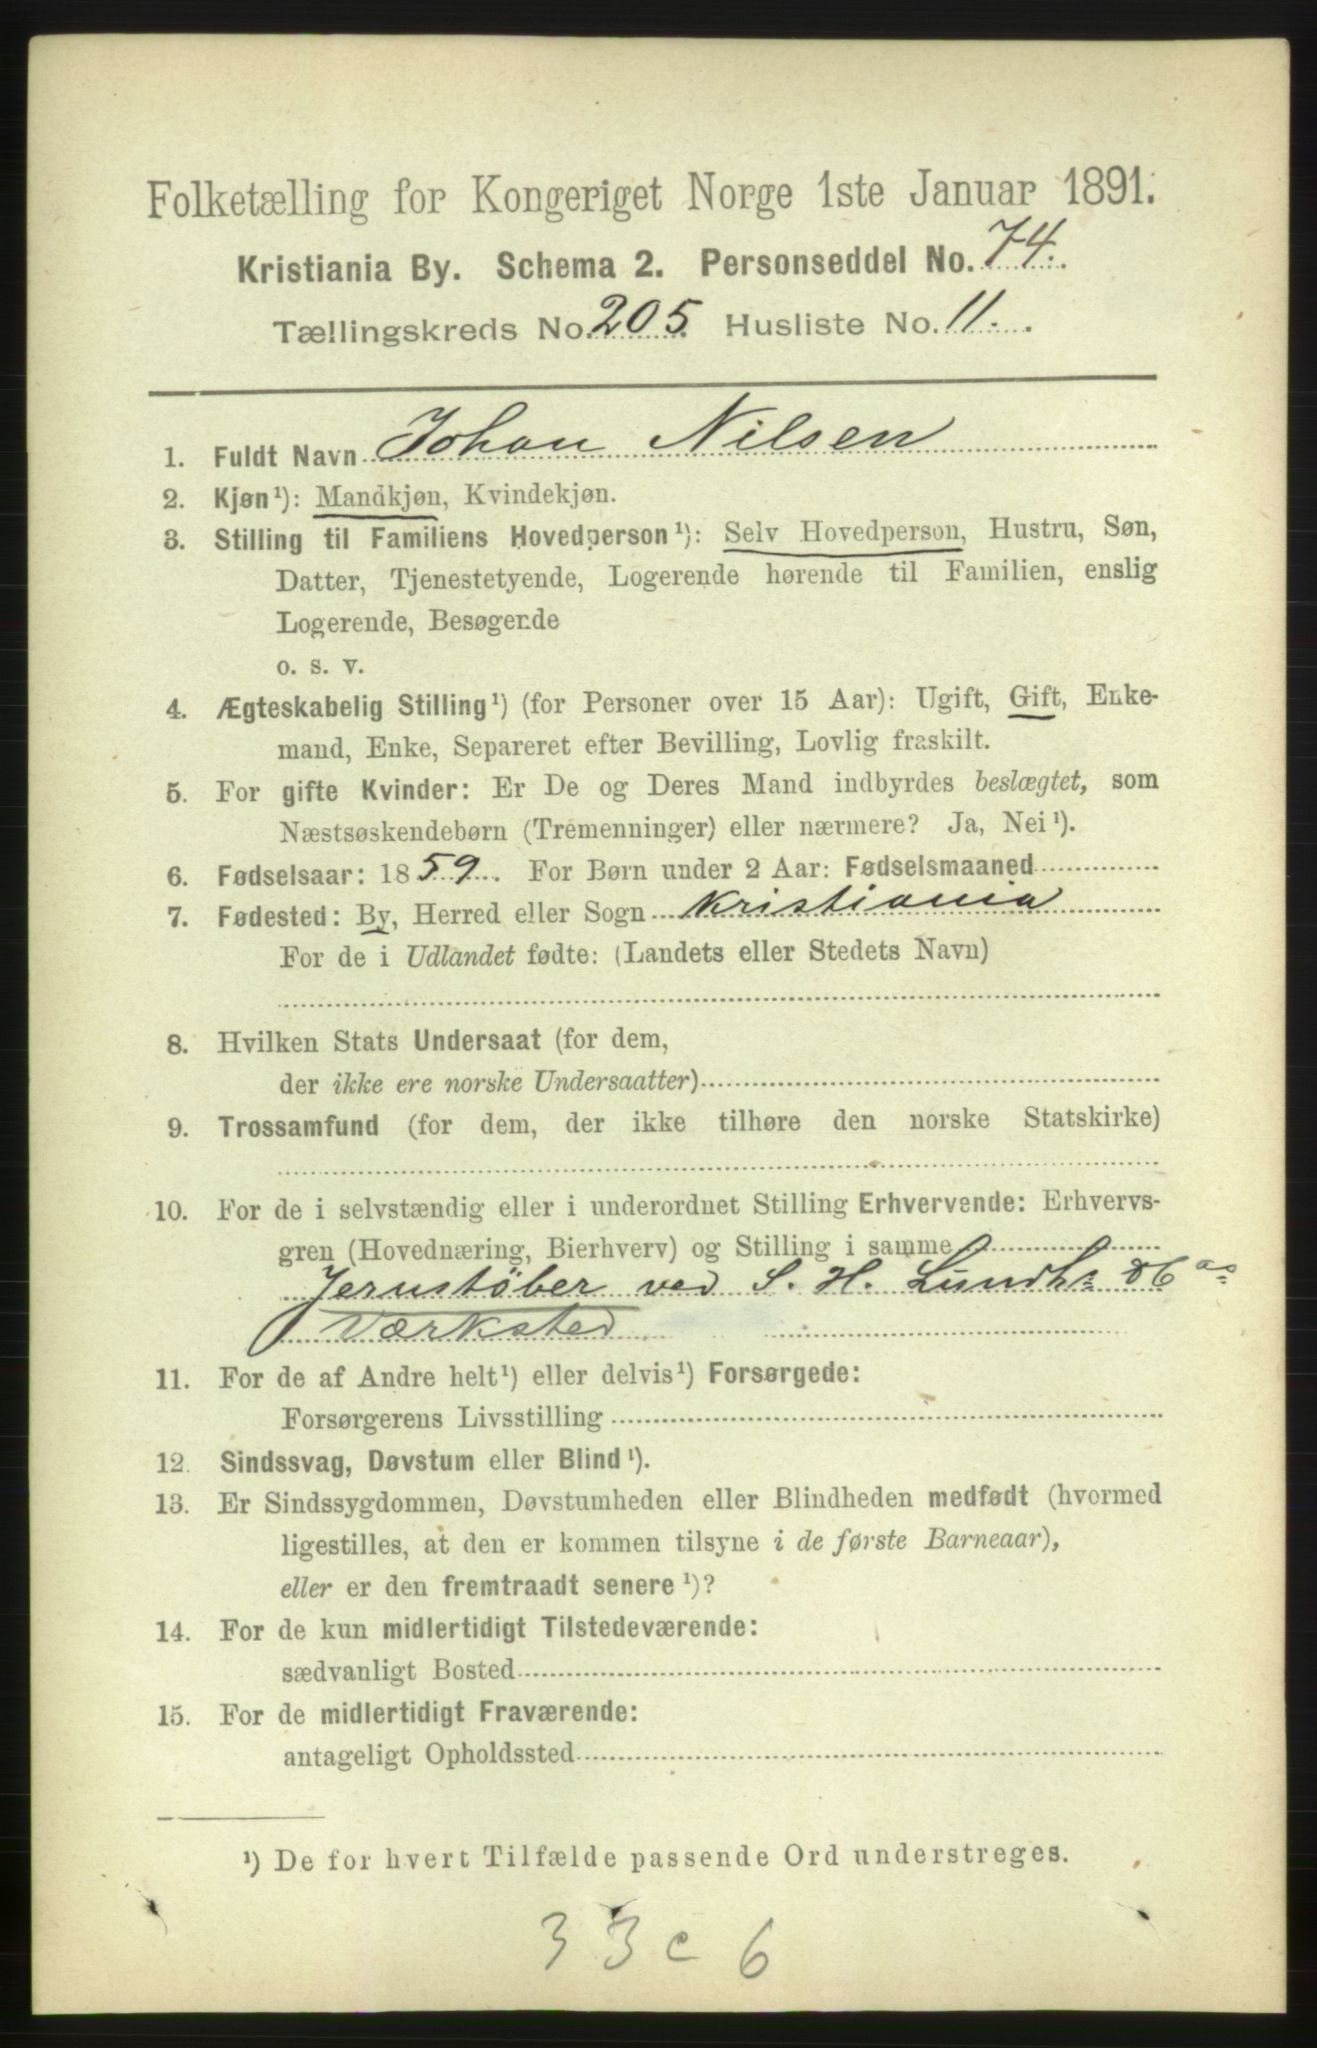 Folketælling for Kongeriget Norge 1ste Januar 1891.
Kristiania By. Schema 2. Personseddel No. 74.
Tællingskreds No. 205. Husliste No. 11.
1. Fuldt Navn Johan Nilsen
2. Kjøn¹): Mandkjøn, Kvindekjøn.
3. Stilling til Familiens Hovedperson¹): Selv Hovedperson, Hustru, Søn,
Datter, Tjenestetyende, Logerende hørende til Familien, enslig
Logerende, Besøgende
o. s. v.
4. Ægteskabelig Stilling¹) (for Personer over 15 Aar): Ugift, Gift, Enke-
mand, Enke, Separeret efter Bevilling, Lovlig fraskilt.
5. For gifte Kvinder: Er De og Deres Mand indbyrdes beslægtet, som
Næstsøskendebørn (Tremenninger) eller nærmere? Ja, Nei¹).
6. Fødselsaar: 1859. For Børn under 2 Aar: Fødselsmaaned
7. Fødested: By, Herred eller Sogn Kristiania
For de i Udlandet fødte: (Landets eller Stedets Navn)
8. Hvilken Stats Undersaat (for dem,
der ikke ere norske Undersaatter)
9. Trossamfund (for dem, der ikke tilhøre den norske Statskirke)
10. For de i selvstændig eller i underordnet Stilling Erhvervende: Erhvervs-
gren (Hovednæring, Bierhverv) og Stilling i samme
Jernstöber ved S. H. Lundhs
Værksted
11. For de af Andre helt¹) eller delvis¹) Forsørgede:
Forsørgerens Livsstilling
12. Sindssvag, Døvstum eller Blind¹).
13. Er Sindssygdommen, Døvstumheden eller Blindheden medfødt (hvormed
ligestilles, at den er kommen tilsyne i de første Barneaar),
eller er den fremtraadt senere¹)?
14. For de kun midlertidigt Tilstedeværende:
sædvanligt Bosted
15. For de midlertidigt Fraværende:
antageligt Opholdssted
¹) De for hvert Tilfælde passende Ord understreges.
33c6